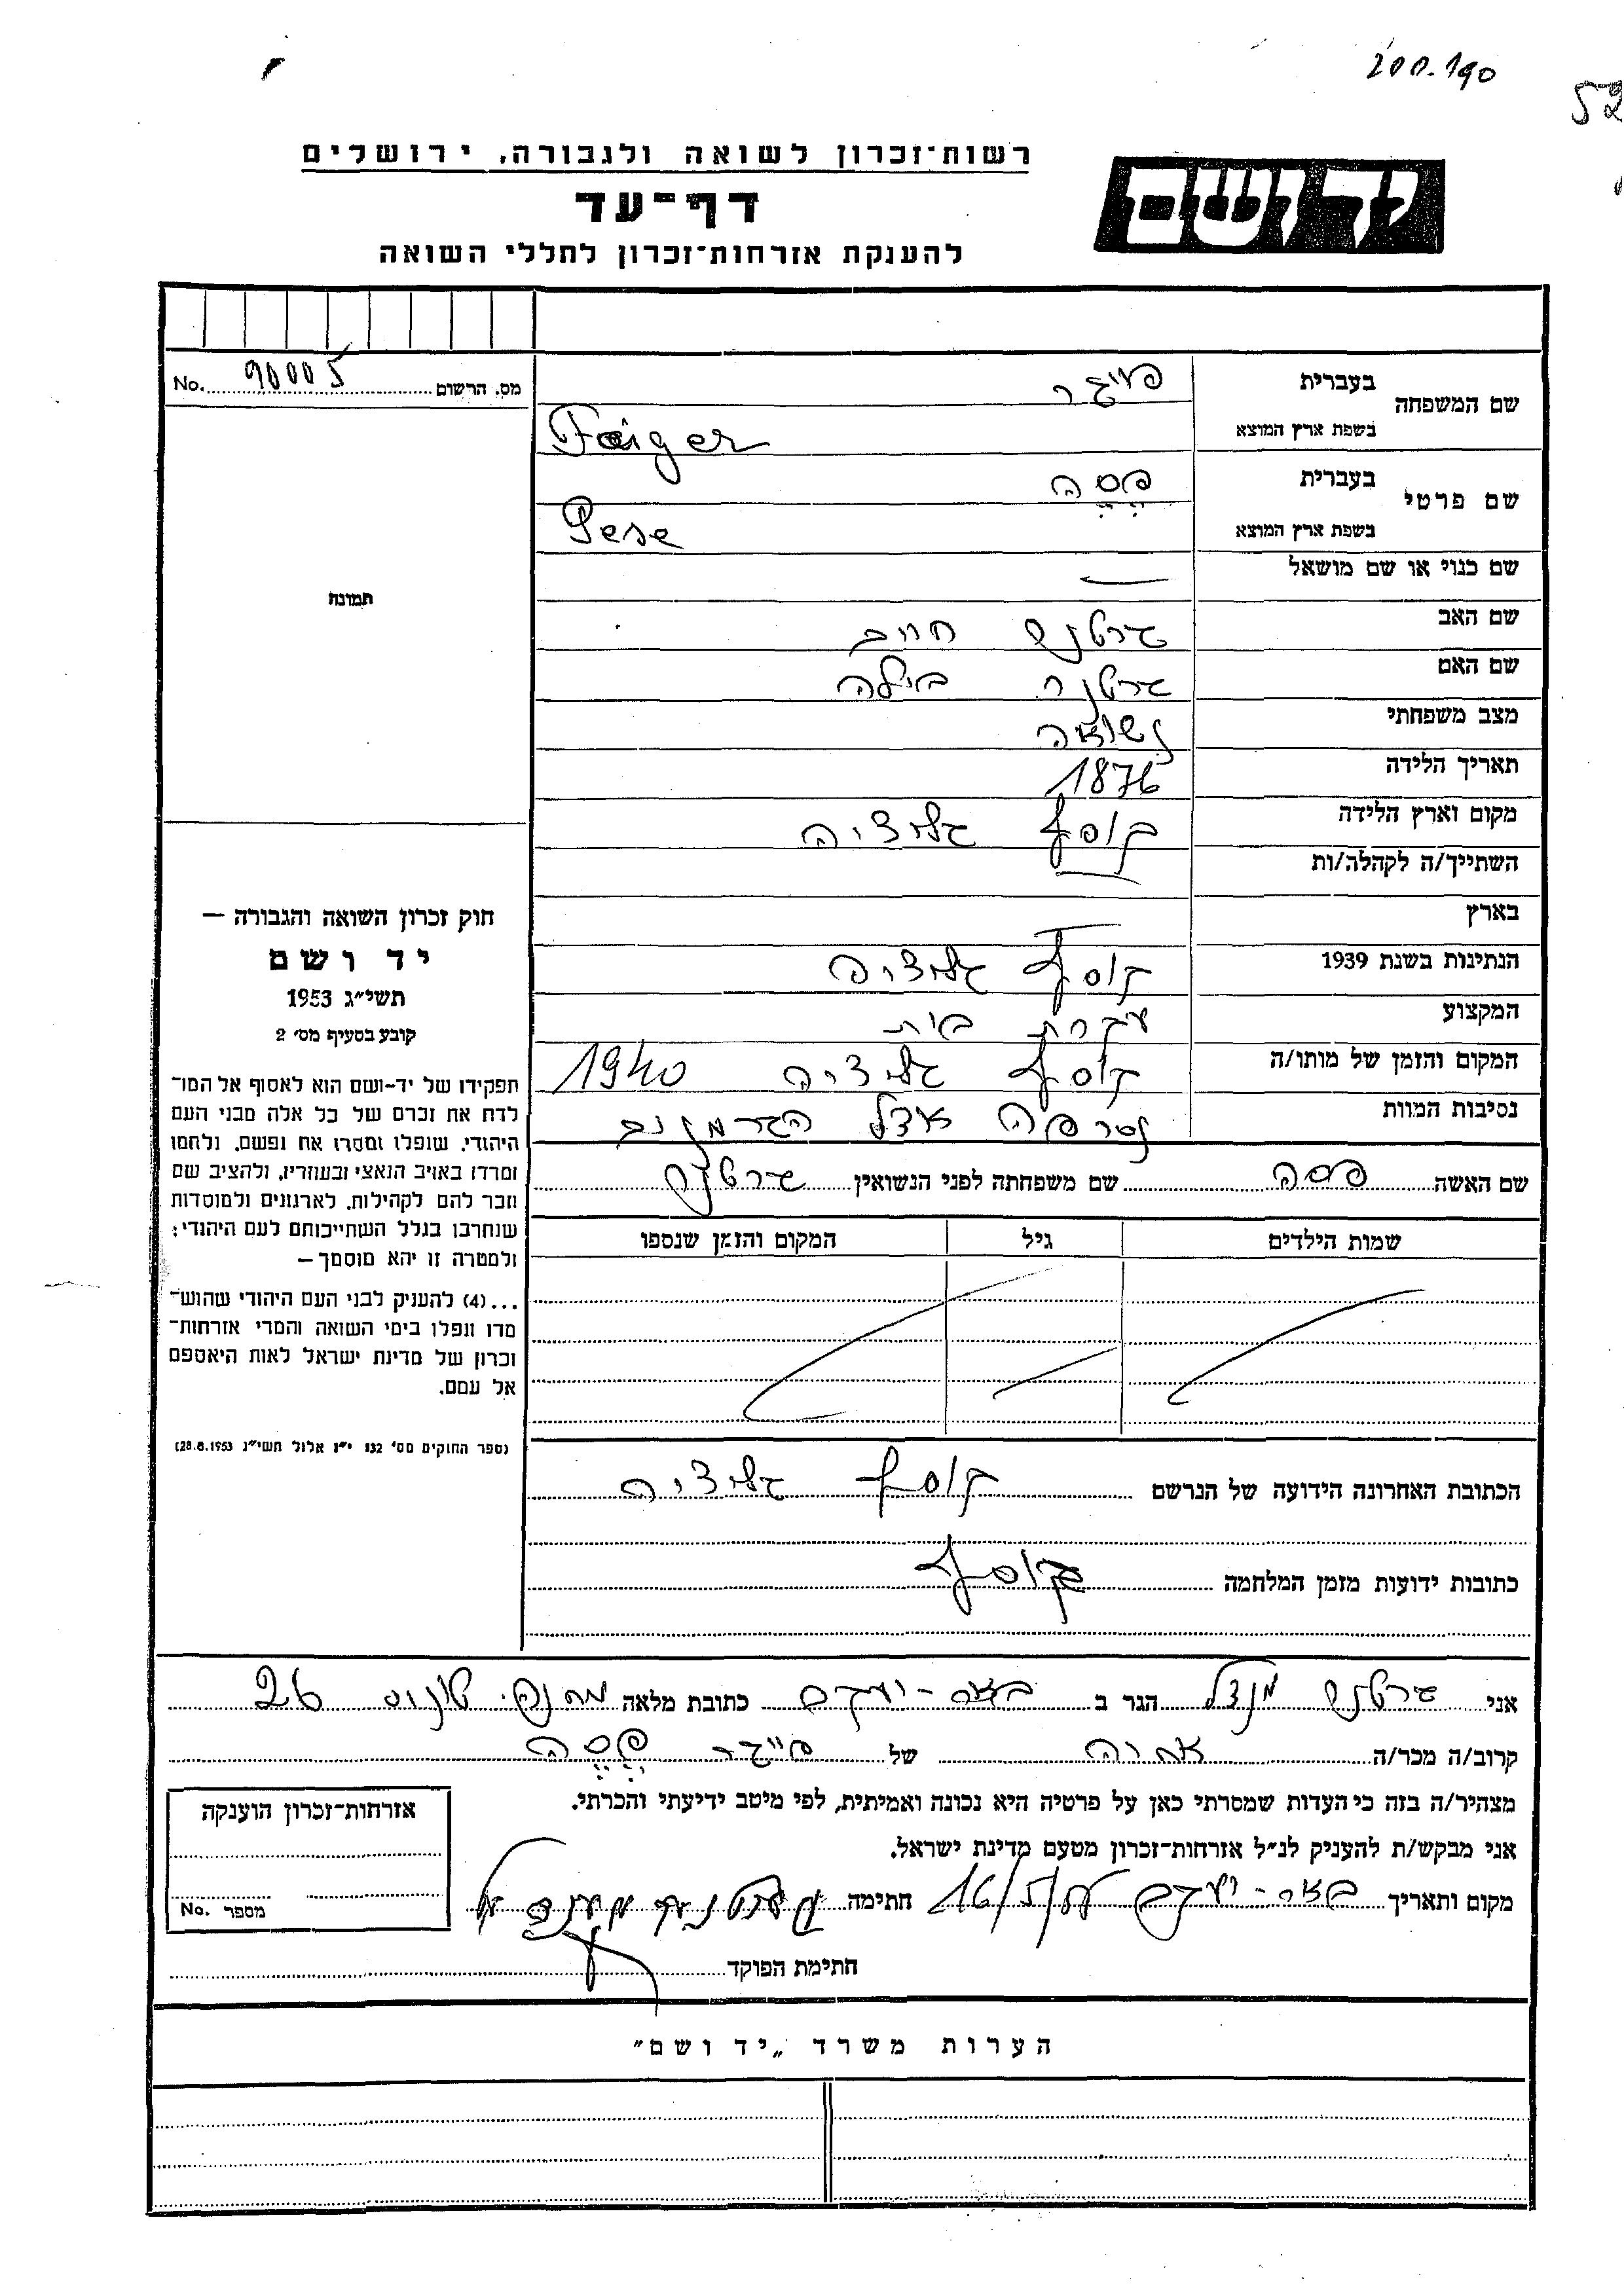 200.190
52
רשות־זכרון לשואה ולגבורה, ירושלים
יד ושם
דף־עד
להענקת אזרחות־זכרון לחללי השואה
No. 90005 מס. הרשום
שם המשפחה
בעברית פייגר
בשפת ארץ המוצא Faiger
שם פרטי
בעברית פסה
בשפת ארץ המוצא Pese
שם כנוי או שם מושאל —
שם האב גרטנר חיים
שם האם גרטנר ביילה
מצב משפחתי נשואה
תאריך הלידה 1876
מקום וארץ הלידה קוסוב גליציה
השתייך/ה לקהלה/ות
בארץ
הנתינות בשנת 1939 קוסוב גליציה
המקצוע עקרת בית
המקום והזמן של מותו/ה קוסוב גליציה 1940
נסיבות המוות נשרפה אצל הגרמנים
שם האשה פסה שם משפחתה לפני הנשואין גרטנר
שמות הילדים גיל המקום והזמן שנספו
הכתובת האחרונה הידועה של הנרשם קוסוב גליציה
כתובות ידועות מזמן המלחמה קוסוב
תמונה
חוק זכרון השואה והגבורה —
יד ושם
תשי״ג 1953
קובע בסעיף מס׳ 2
תפקידו של יד-ושם הוא לאסוף אל המו־
לדת את זכרם של כל אלה מבני העם
היהודי, שנפלו ומסרו את נפשם, נלחמו
ומרדו באויב הנאצי ובעוזריו, ולהציב שם
וזכר להם לקהילות, לארגונים ולמוסדות
שנחרבו בגלל השתייכותם לעם היהודי;
ולמטרה זו יהא מוסמך—
...(4) להעניק לבני העם היהודי שהוש־
מדו ונפלו בימי השואה והמרי אזרחות־
זכרון של מדינת ישראל לאות היאספם
אל עמם.
(ספר החוקים מס׳ 132 י״ז אלול תשי״ג 28.8.1953)
אני גרטנר מנדל הגר ב באר-יעקב כתובת מלאה 26
קרוב/ה מכר/ה של פייגר פסה
מצהיר/ה בזה כי העדות שמסרתי כאן על פרטיה היא נכונה ואמיתית, לפי מיטב ידיעתי והכרתי.
אני מבקש/ת להעניק לנ״ל אזרחות־זכרון מטעם מדינת ישראל.
מקום ותאריך באר-יעקב חתימה
חתימת הפוקד
אזרחות־זכרון הוענקה
No. מספר
הערות משרד „יד ושם״